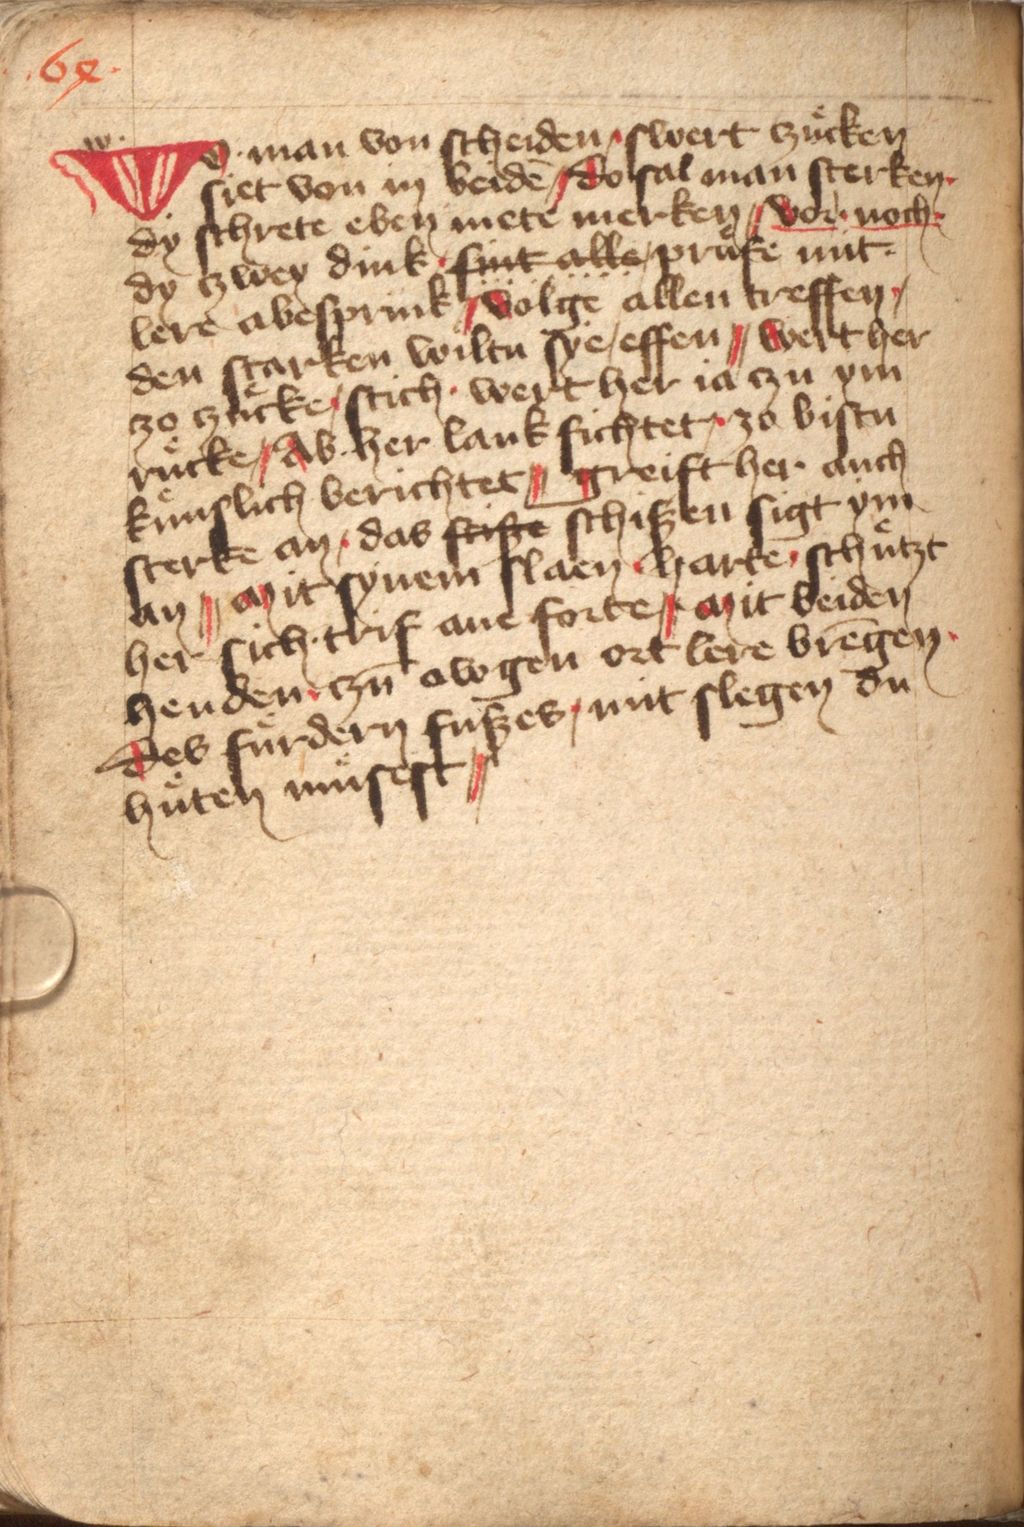 .64.
w.
Wo man von scheiden · swert czuͤcken
siet von in beidē / do sal man sterken·
dy schrete eben mete merken // vor · noch ·
dy czwey dink · sint alle pruͤfe mit·
lere abesprink // volge allen treffen ·
den starken wiltu sye / effen // wert her
zo czuͤcke / stich · wert her ia czu ym
ruͤcke // Ab her lank fichtet · zo bistu
kuͤnslich berichtet // greift her auch
sterke an · das schißen sigt ym
an // mit synem slaen harte · schuͤtzt
her sich · trif ane forte // mit beiden
henden · czū awgen ort lere brēgen ·
des fuͤrdern fußes · mit slegen du
huͤten muͤsest //